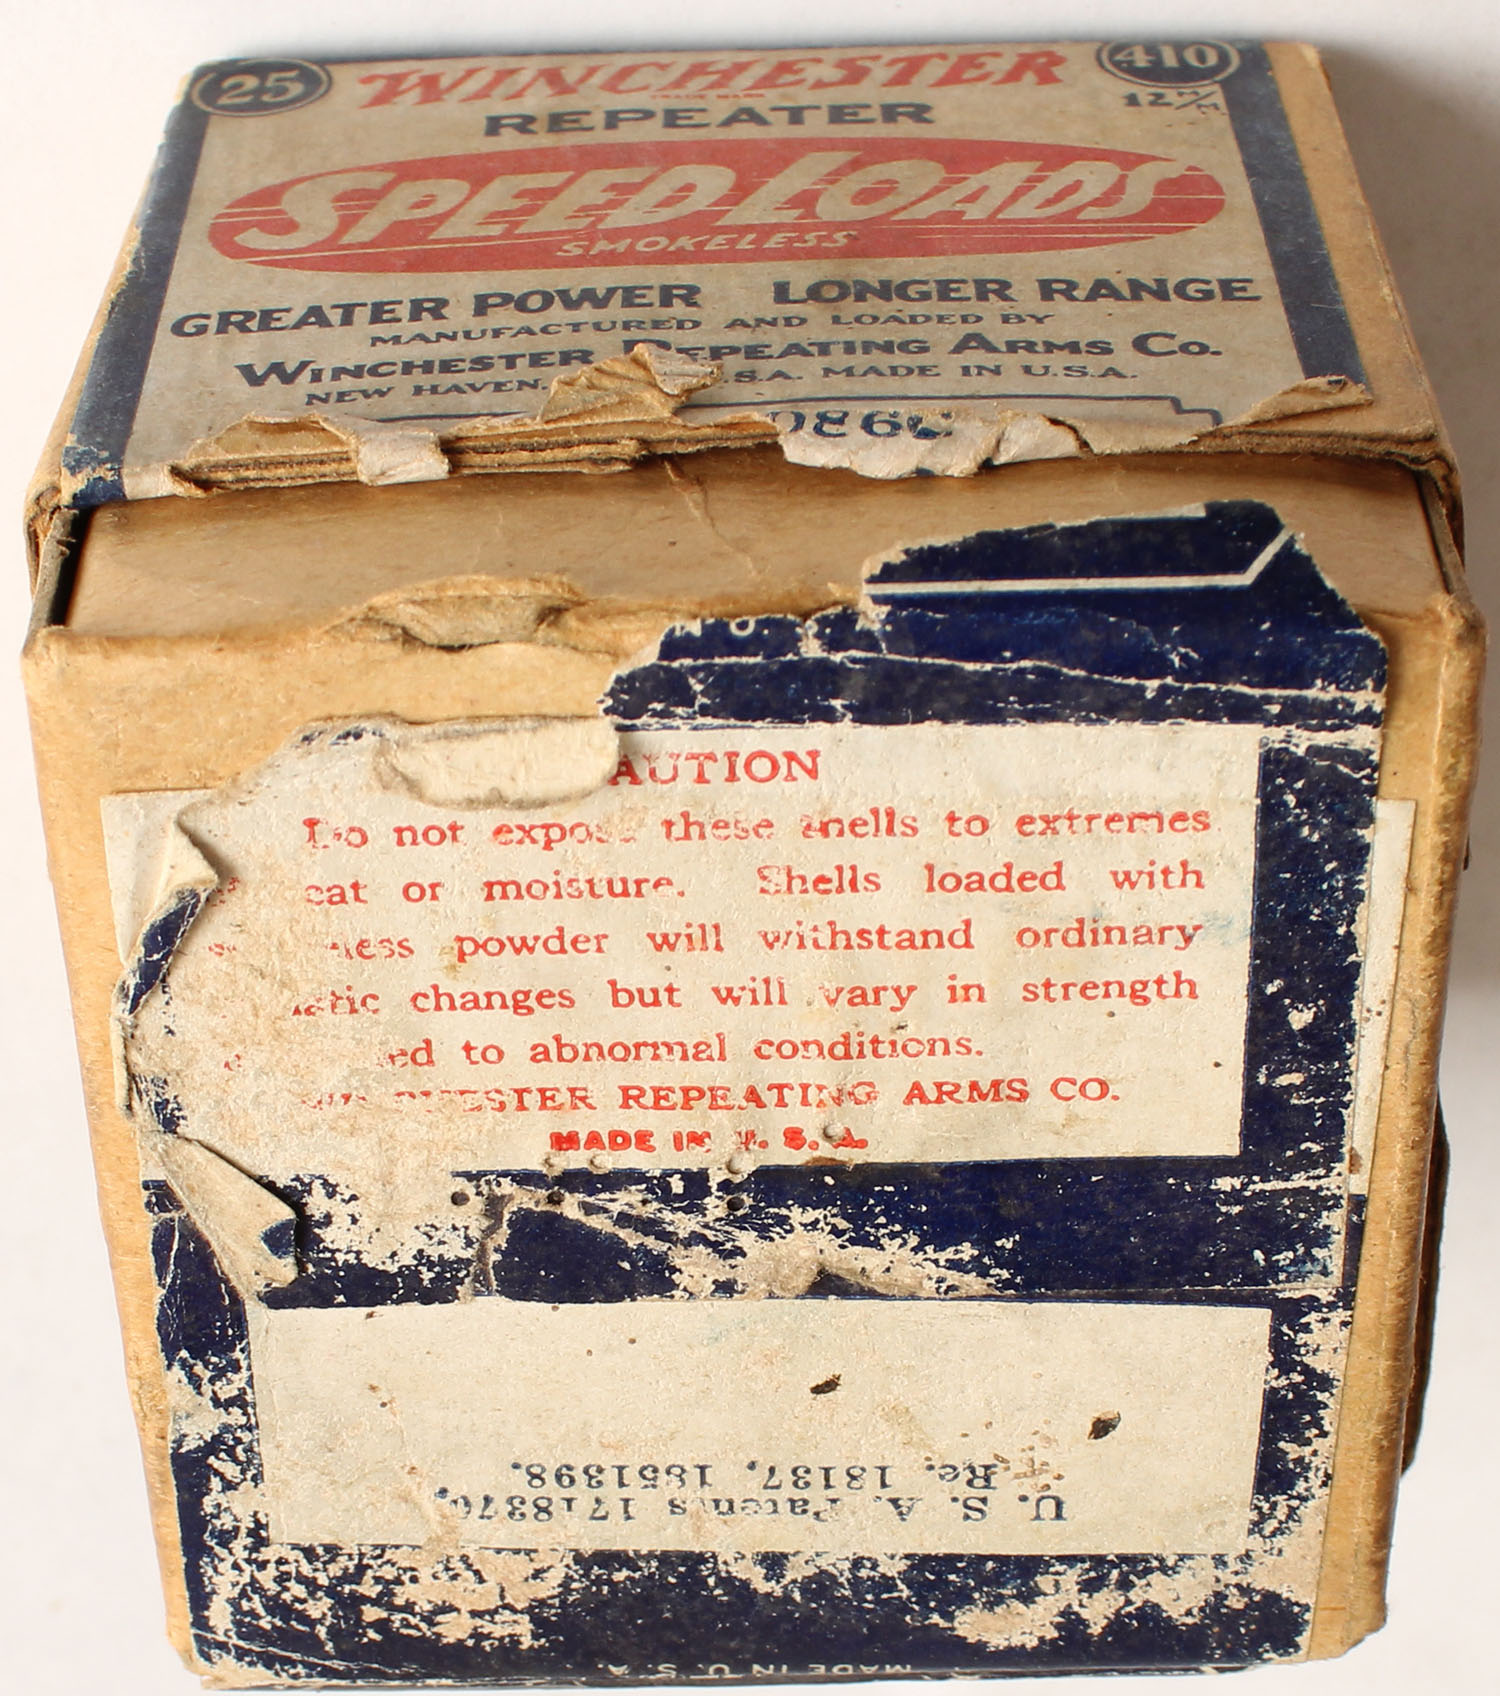 25 WINCHESTER 410
TRADE MARK
12 M/M.
REPEATER
SPEED LOADS
SMOKELESS
GREATER POWER LONGER RANGE
MANUFACTURED AND LOADED BY
WINCHESTER REPEATING ARMS CO.
NEW HAVEN, .S.A. MADE IN U.S.A.
AUTION
Do not expose these shells to extremes
eat or moisture. Shells loaded with
less powder will withstand ordinary
atic changes but will vary in strength
ed to abnormal conditions.
CHESTER REPEATING ARMS CO.
MADE IN U. S. A.
U. S. A. Patents 1718370,
Re. 18137, 1851398.
MADE IN U. S. A.